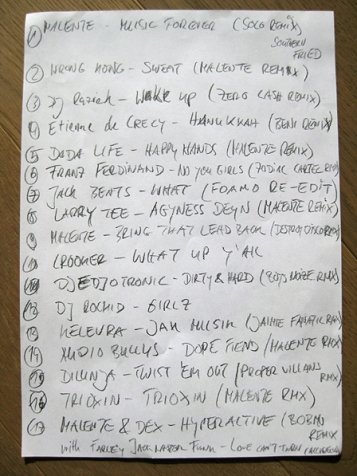 ① MALENTE - MUSIC FOREVER (SOLO REMIX)
SOUTHERN
FRIED
② WRONG KONG - SWEAT (MALENTE REMIX)
③ DJ - WAKE UP (ZERO CASH REMIX)
④ Etienne de CRECY - HANUKKAH (REMIX)
⑤ DADA LIFE - HAPPY HANDS (MALENTE REMIX)
⑥ FRANZ FERDINAND - NO YOU GIRLS (ZODIAC CARTEL RMX)
⑦ JACK BEATS - WHAT (FOAMO RE-EDIT)
⑧ LARRY TEE - AGYNESS DEYN (MALENTE REMIX)
⑨ MALENTE - BRING THAT LEAD BACK (DESTROY DISCO REMIX)
⑩ CROOKER - WHAT UP Y'ALL
⑪ DJEDJOTRONIC - DIRTY & HARD (BOYS NOIZE RMX)
⑫ DJ ROCHID - GIRLZ
⑬ KELEVRA - JAK MUSIK (JAIMIE FANATIC RMX)
⑭ AUDIO BULLYS - DOPE FIEND (MALENTE RMX)
⑮ - TWIST 'EM OUT (PROPER VILLIANS
RMX)
⑯ TRIOXIN - TRIOXIN (MALENTE RMX)
⑰ MALENTE & DEX - HYPERACTIVE (BOBMO
REMIX
with FARLEY JACKMASTER FUNK - LOVE CAN'T TURN